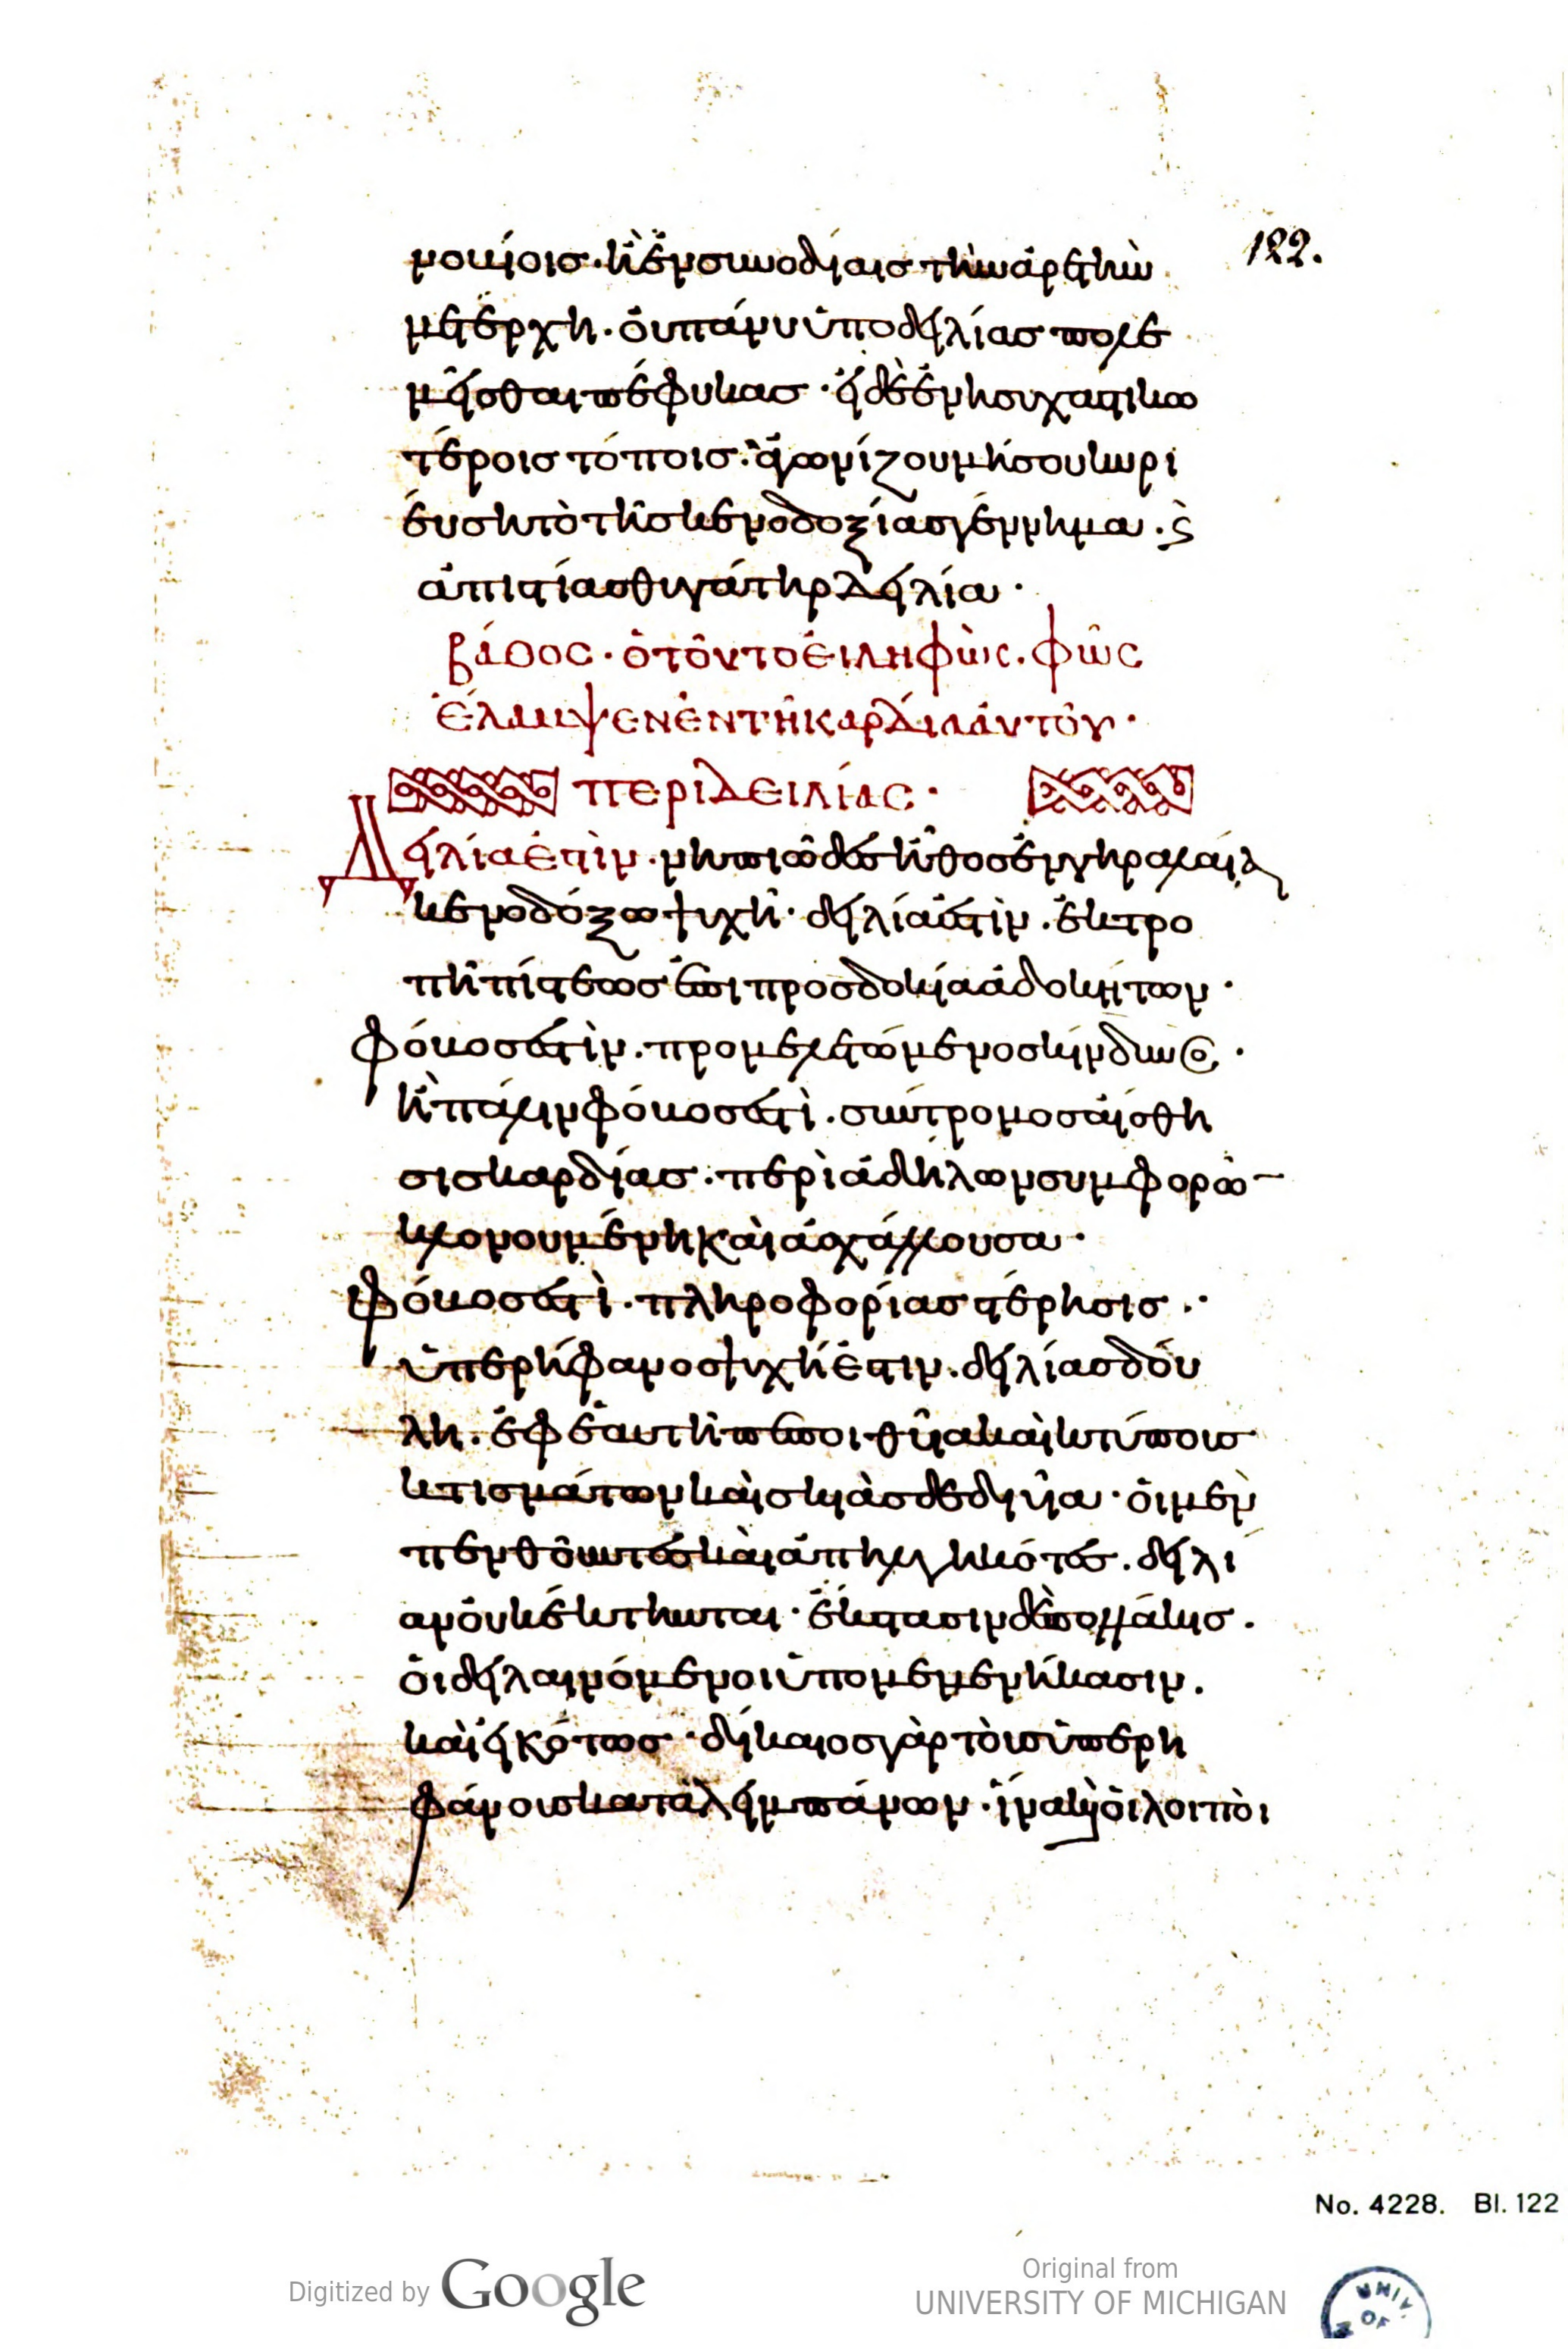 122.
νοβίοις· ἢ ἐν συνοδίαις τὴν ἀρετὴν
μετέρχη· ὀυ πάνυ ὑπο δειλίας πολε
μεῖσθαι πέφυκας· εἰ δὲ ἐν ἡσυχαστικω
τέροις τόποις· ἀγωνίζου μή σου κυρι
έυση τὸ τῆς κενοδοξίας γέννημα· ϛ
ἀπιστίας θυγάτηρ δειλία·
βάθος· ὁ τοῦτο ἐιληφὼς· φῶς
ἔλαμψεν ἐν τῆ καρδίαι ἀυτοῦ·
περὶ δειλίας·
Δειλία ἐστὶν· νηπιῶδες ἦθος ἐν γηραλαία
κενοδόξω ψυχῆ· δειλία ἐστὶν· ἐκτρο
πὴ πίστεως ἐπι προσδοκία ἀδοκήτων·
Φόβος ἐστὶν· προμελετώμενος κίνδυνος·
ἢ πάλιν φόβος ἐστὶ· σύντρομος ἄισθη
σις καρδίας· περὶ ἀδήλων συμφορῶ
κλονουμένη καὶ ἀσχάλλουσα·
Φόβος ἐστὶ· πληροφορίας στέρησις·
ὑπερήφανος ψυχή ἐστιν· δειλίας δού
λη· ἐφ ἑαυτῆ πεποιθυῖα καὶ κτύποις
κτισμάτων καὶ σκιὰς δεδιυῖα· ὁι μὲν
πενθοῦντες καὶ ἀπηλγηκότες· δειλί
αν ὀυ κέκτηνται· ἐκστασιν δὲ πολλάκις·
ὁι δειλαινόμενοι ὑπομεμενήκασιν·
καὶ εἰκότως· δίκαιος γὰρ τοῖς ὑπερη
φάνοις καταλειμπάνων· ἵνα κὴ ὁι λοιποὶ
No. 4228. Bl. 122
Digitized by Google
Original from
UNIVERSITY OF MICHIGAN
UNIV.
OF